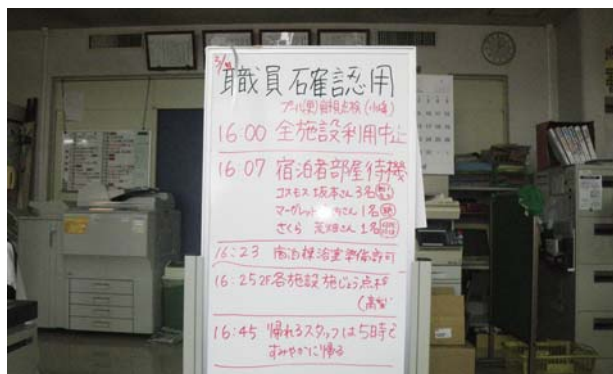 職員確認用
プール(奥)目視点検(小峰)
16:00 全施設利用中止
16:07 宿泊者部屋待機
コスモス 坂本さん3名
マーガレット さん1名
さくら さん1名
16:23 宿泊棟浴室準備許可
16:25 2F各施設施じょう点検
16:45 帰れるスタッフは5時で
すみやかに帰る